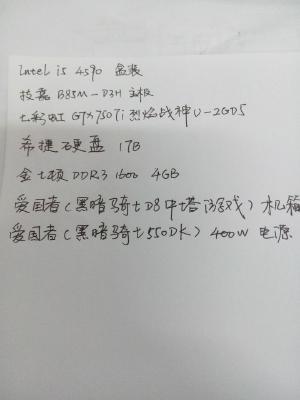 Intel i5 4590 盒装
技嘉 B85M-D3H 主板
七彩虹 GTX750Ti 烈焰战神U-2GD5
希捷硬盘 1TB
金士顿 DDR3 1600 4GB
爱国者(黑暗骑士D8中塔游戏)机箱
爱国者(黑暗骑士550DK)400W 电源